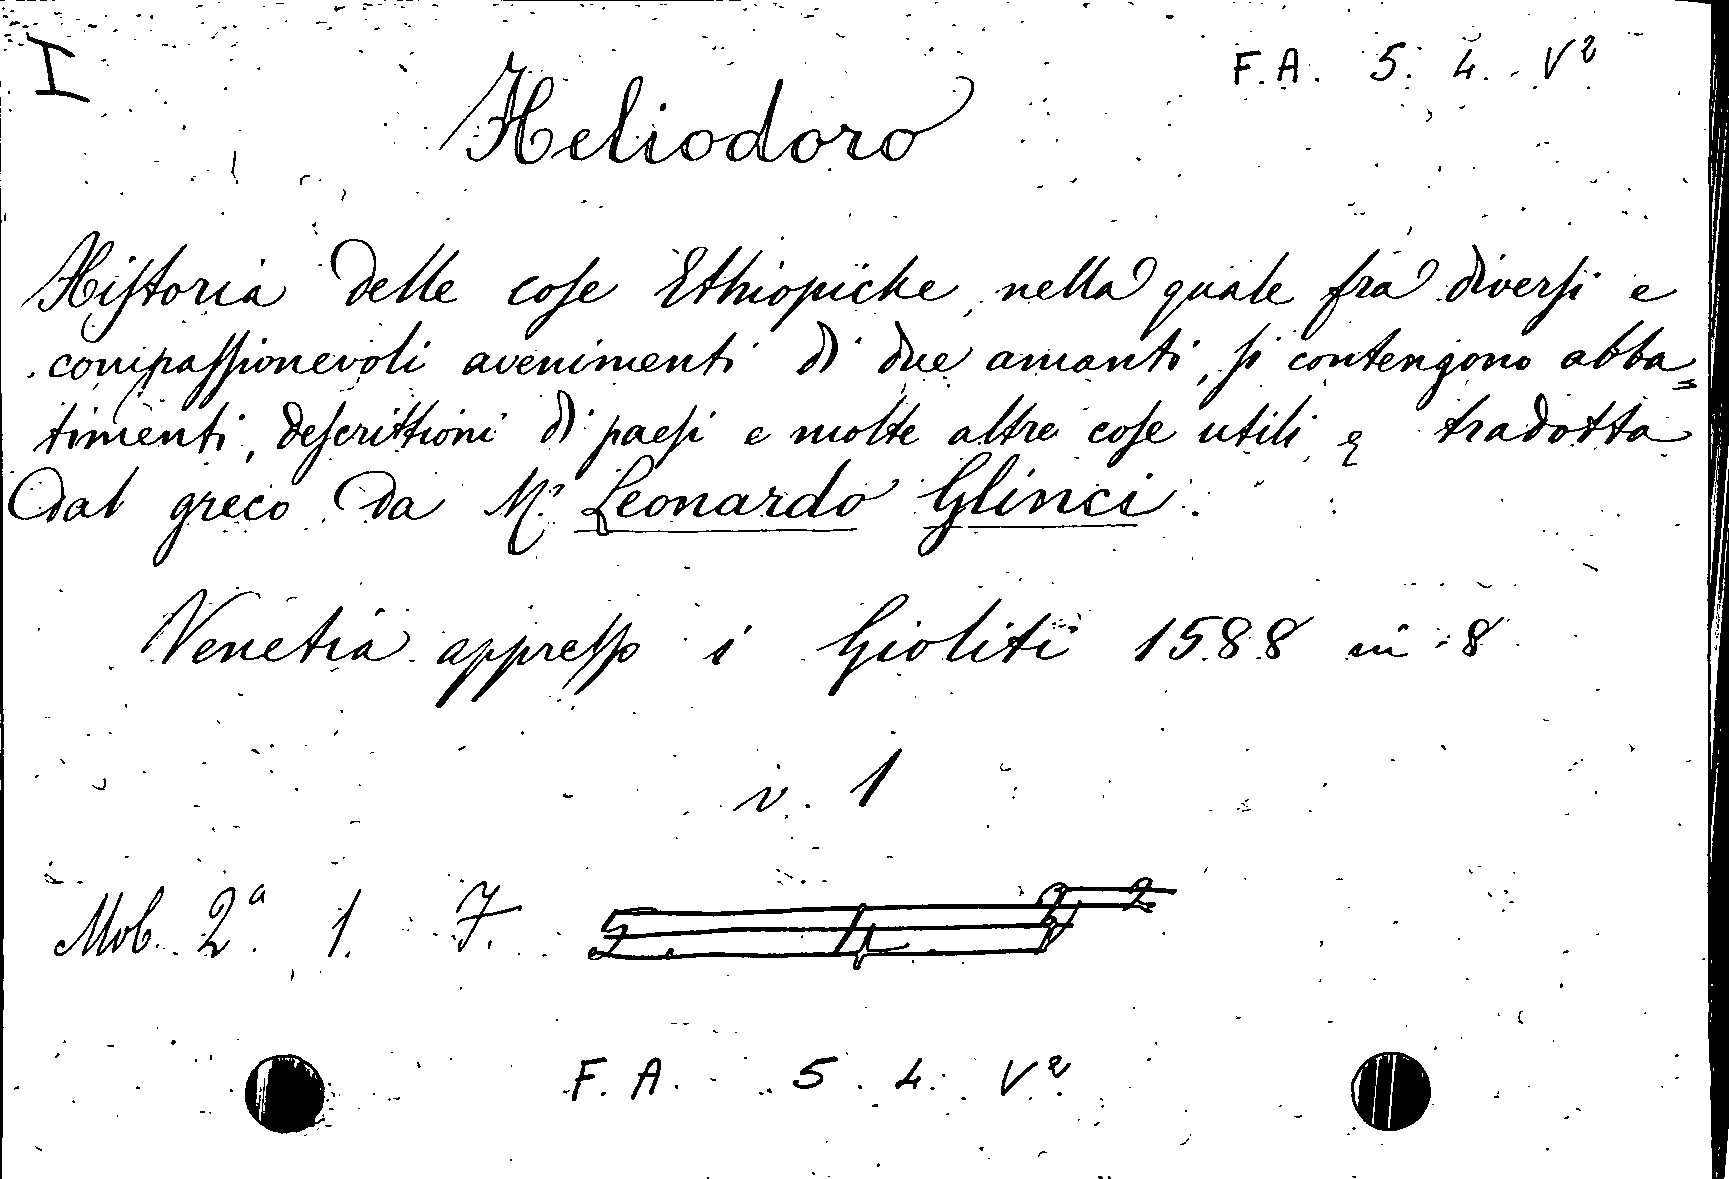 I
F. A. 5. 4. V²
Heliodoro
Historia delle cose Ethiopiche, nella quale fra diversi e
compassionevoli avenimenti di due amanti, si contengono abba=
timenti, descrittioni di paesi e molte altre cose utili, e tradotta
dal greco da M.r Leonardo Glinci.
Venetia appresso i Gioliti 1588 in 8
v. 1
Mob. 2ª. 1. 7.
F. A. 5. 4. V²